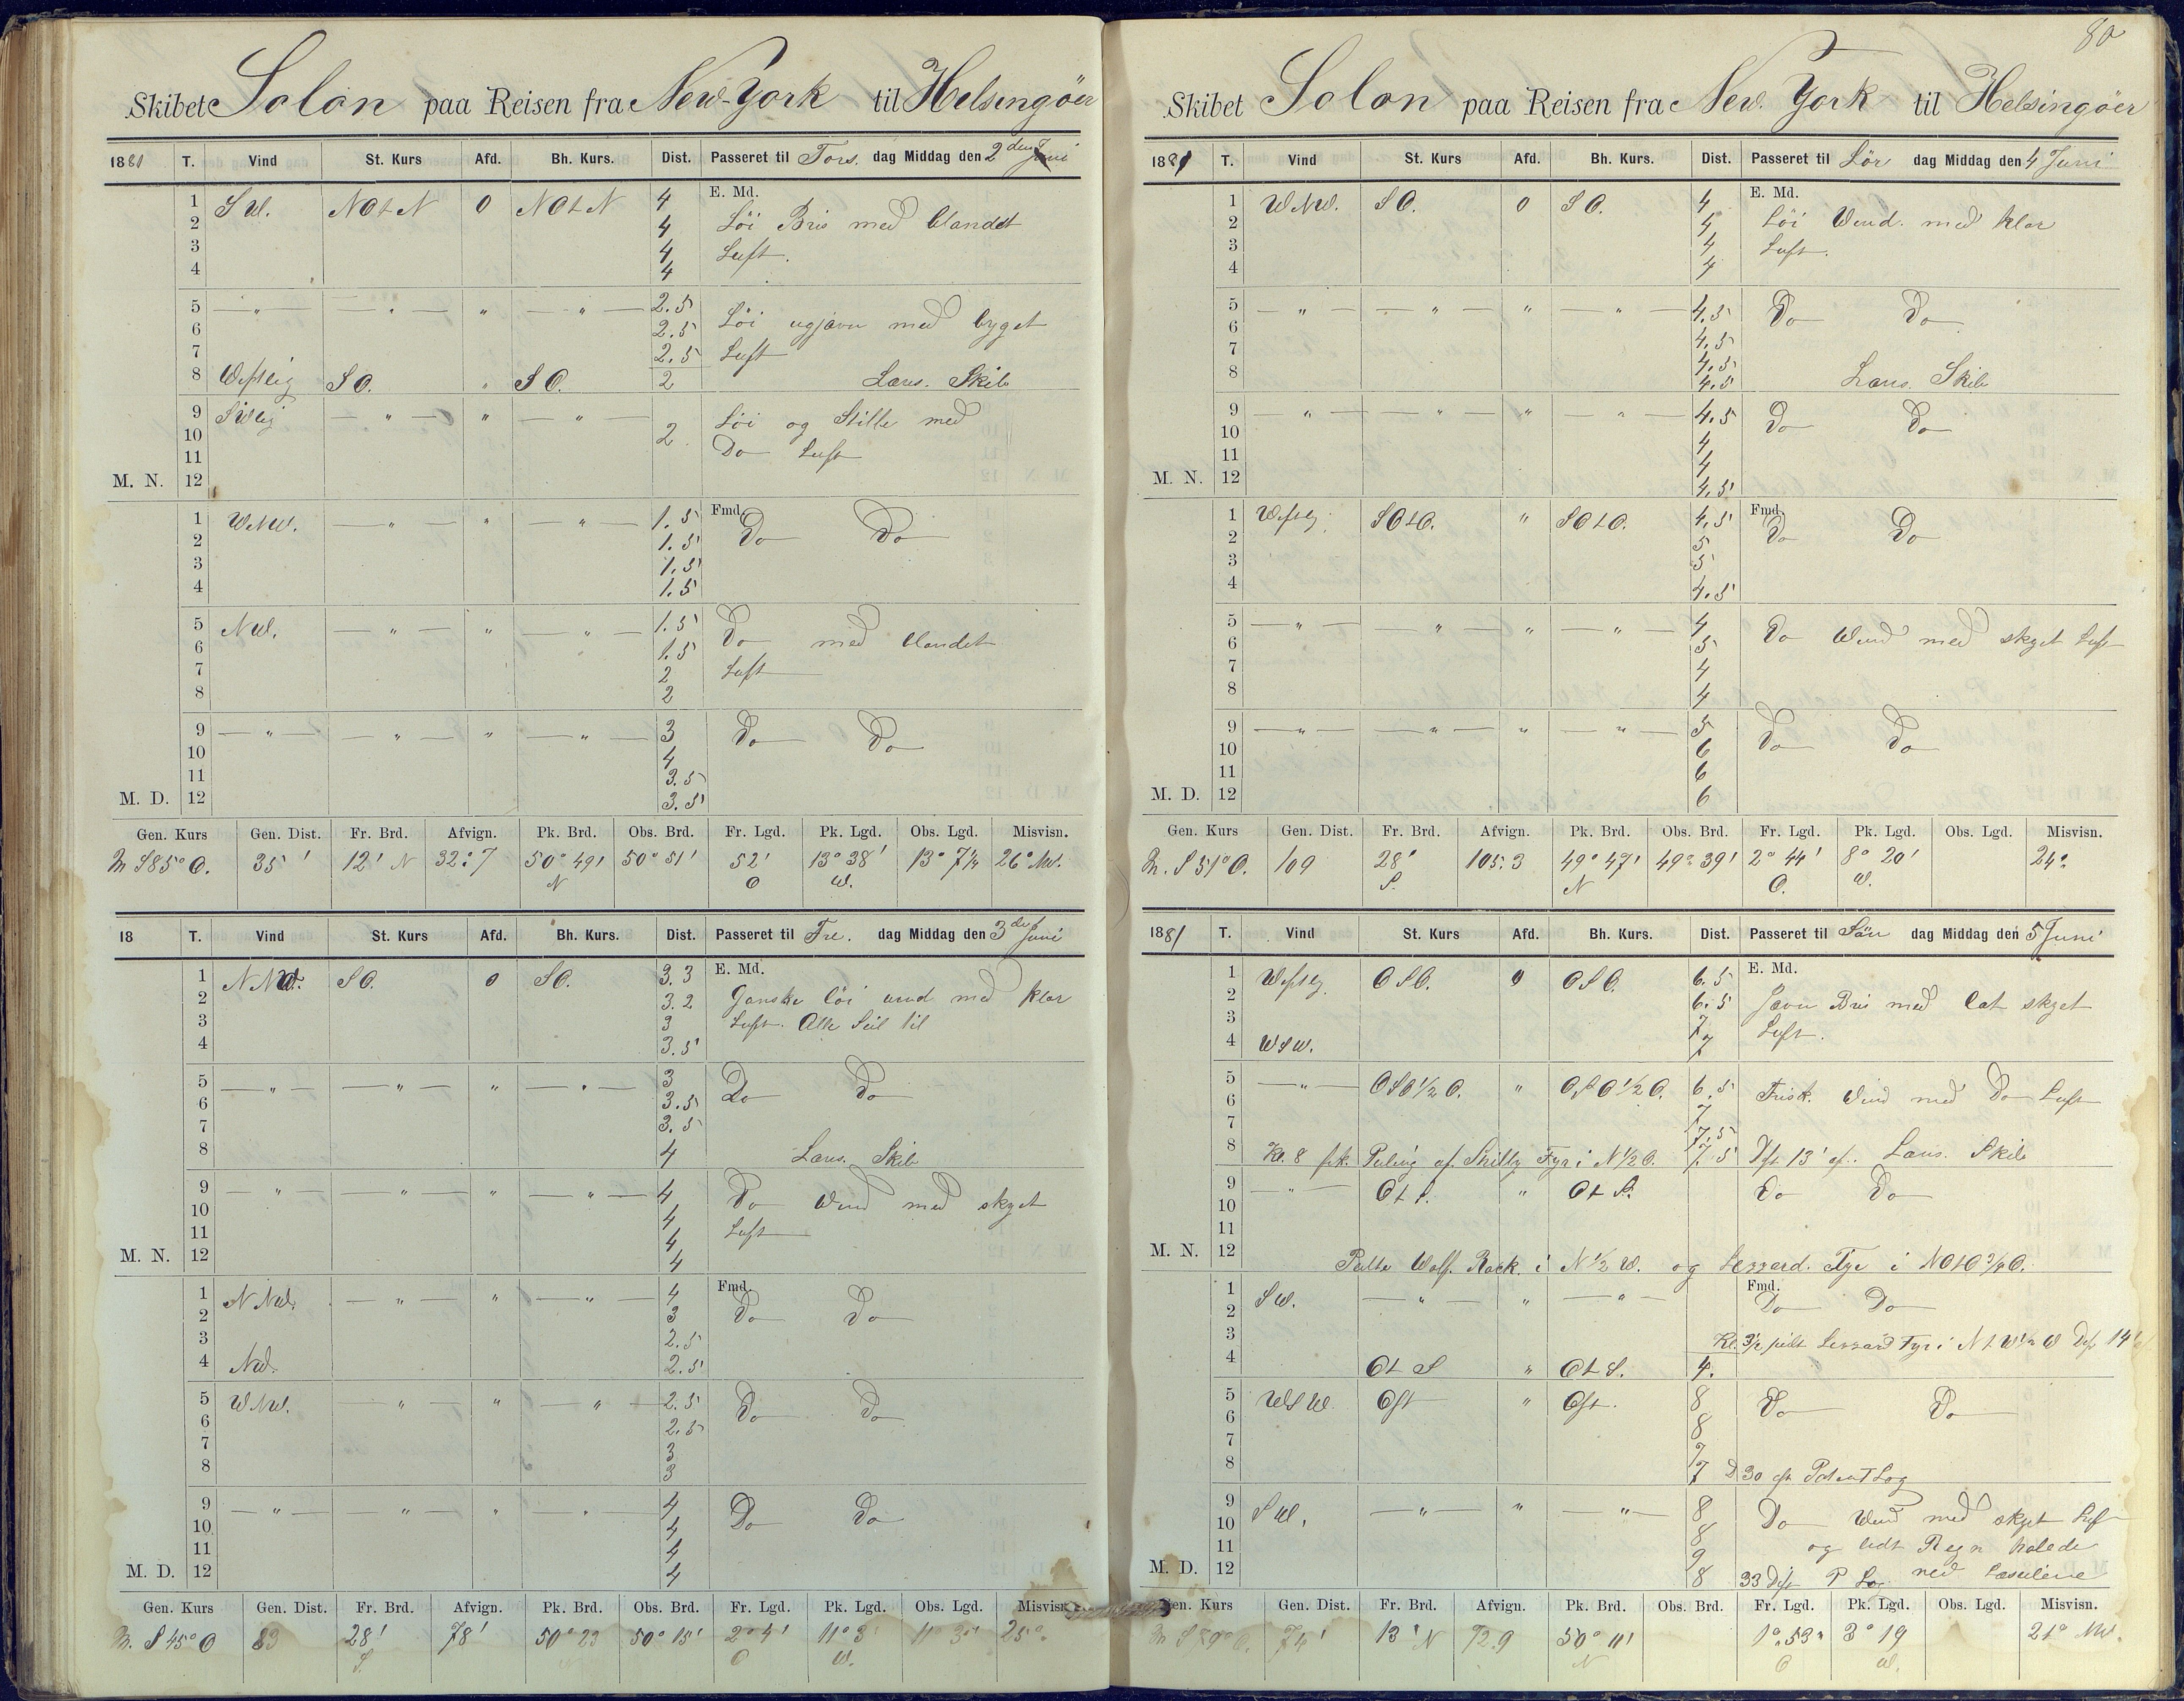 80
Skibet Solon paa Reisen fra New-York til Helsingöer
1881 T. Vind St. Kurs Afd. Bh. Kurs. Dist. Passeret til Tors. dag Middag den 2den Juni
1 SW. NOtN 0 NOtN 4 E. Md.
2 4 Löi Bris med blandet
3 4 Luft.
4 4
5 — " — — " — " — " — 2.5
6 2.5 Löi ugjævn med byget
7 2.5 Luft
8 Westlig SO. " SO. 2 Læns. Skib
9 SWlig — " — " — " — Löi og Stille med
10 2 Do Luft
11
M. N. 12
1 WNW. — " — " — " — 1.5 Fmd.
2 1.5 Do Do
3 1.5
4 1.5
5 NW. — " — " — " — 1.5
6 1.5 Do med blandet
7 2 Luft
8 2
9 — " — — " — " — " — 3 Do Do
10 4
11 3.5
M. D. 12 3.5
Gen. Kurs Gen. Dist. Fr. Brd. Afvign. Pk. Brd. Obs. Brd. Fr. Lgd. Pk. Lgd. Obs. Lgd. Misvisn.
M S85° O. 35' 12' N 32:7 50° 49' N 50° 51' 52' O 13° 38' W. 13° 7 1/4 26° NW.
18 T. Vind St. Kurs Afd. Bh. Kurs. Dist. Passeret til Fre. dag Middag den 3de Juni
1 NNW. SO. 0 SO. 3.3 E. Md.
2 3.2 Ganske löi vind med klar
3 3 Luft. Alle Seil til
4 3.5
5 — " — — " — " — " — 3
6 3.5 Do Do
7 3.5
8 4 Læns. Skib
9 — " — — " — " — " — 4 Do Wind med skyet
10 4 Luft
11 4
M. N. 12 4
1 NNW. — " — " — " — 4 Fmd.
2 3 Do Do
3 2.5
4 NW. 2.5
5 WNW. — " — " — " — 2.5 Do Do
6 2.5
7 3
8 3
9 — " — — " — " — " — 4 Do Do
10 4
11 4
M. D. 12 4
Gen. Kurs Gen. Dist. Fr. Brd. Afvign. Pk. Brd. Obs. Brd. Fr. Lgd. Pk. Lgd. Obs. Lgd. Misvisn.
M. S 45° O 83 28' S. 78' 50° 23 N 50° 15' 2° 4' O 11° 3' W. 11° 25°
Skibet Solon paa Reisen fra New. York til Helsingöer
1881 T. Vind St. Kurs Afd. Bh. Kurs. Dist. Passeret til Lör dag Middag den 4 Juni
1 WNW. SO. 0 SO. 4 E. Md.
2 4 Löi Wind. med klar
3 4 Luft.
4 4
5 — " — — " — " — " — 4.5 Do Do
6 4.5
7 4.5
8 4.5 Læns. Skib
9 — " — — " — " — " — 4.5 Do Do
10 4
11 4
M. N. 12 4.5
1 Westlig SOtO. " SOtO. 4.5 Fmd.
2 5 Do Do
3 5
4 4.5
5 — " — " " — " — 4
6 5 Do Wind med skyet Luft
7 4
8 4
9 — " — — " — " — " — 5 Do Do
10 6
11 6
M. D. 12 6
Gen. Kurs Gen. Dist. Fr. Brd. Afvign. Pk. Brd. Obs. Brd. Fr. Lgd. Pk. Lgd. Obs. Lgd. Misvisn.
M. S 51° O. 109 28' S. 105.3 49° 47' N 49° 39' 2° 44' O. 8° 20' W. 24°
1881 T. Vind St. Kurs Afd. Bh. Kurs. Dist. Passeret til Sön dag Middag den 5 Juni
1 Westlig OSO. 0 OSO. 6.5 E. Md.
2 6.5 Jævn Bris med let skyet
3 7 Luft.
4 WSW. 7
5 — " — OSO 1/2 O. " OSO 1/2 O. 6.5 Frisk. Wind med Do Luft
6 7
7 7.5
8 Kl. 8 fik Peiling af Skilly Fyr i N 1/2 O. 7.5 Dst 13' af. Læns. Skib
9 — " — OtS. " OtS. Do Do
10
11
M. N. 12 Peilte Wolf. Rock. i N 1/2 W. og Lezzard. Fyr i NOtO 3/4 O.
1 SW. — " — " — " — Fmd.
2 Do Do
3 Kl. 3 1/2 peilt Lezzard Fyr i NtW 1/2 W Dst 14'
4 OtS " OtS. 4.
5 WSW Ost " Ost. 8 Do Do
6 8
7 7
8 7 D 30 efr Patent Log
9 SW. — " — " — " — 8
10 8 Do Wind med skyet Luft
11 9 og lidt Regn halede
M. D. 12 8 33 Dist P Log ned Læseilene
Gen. Kurs Gen. Dist. Fr. Brd. Afvign. Pk. Brd. Obs. Brd. Fr. Lgd. Pk. Lgd. Obs. Lgd. Misvisn.
M S 79° O. 74' 13' N 72.9 50° 11' N 1° 53" O 3° 19 W. 21° NW.